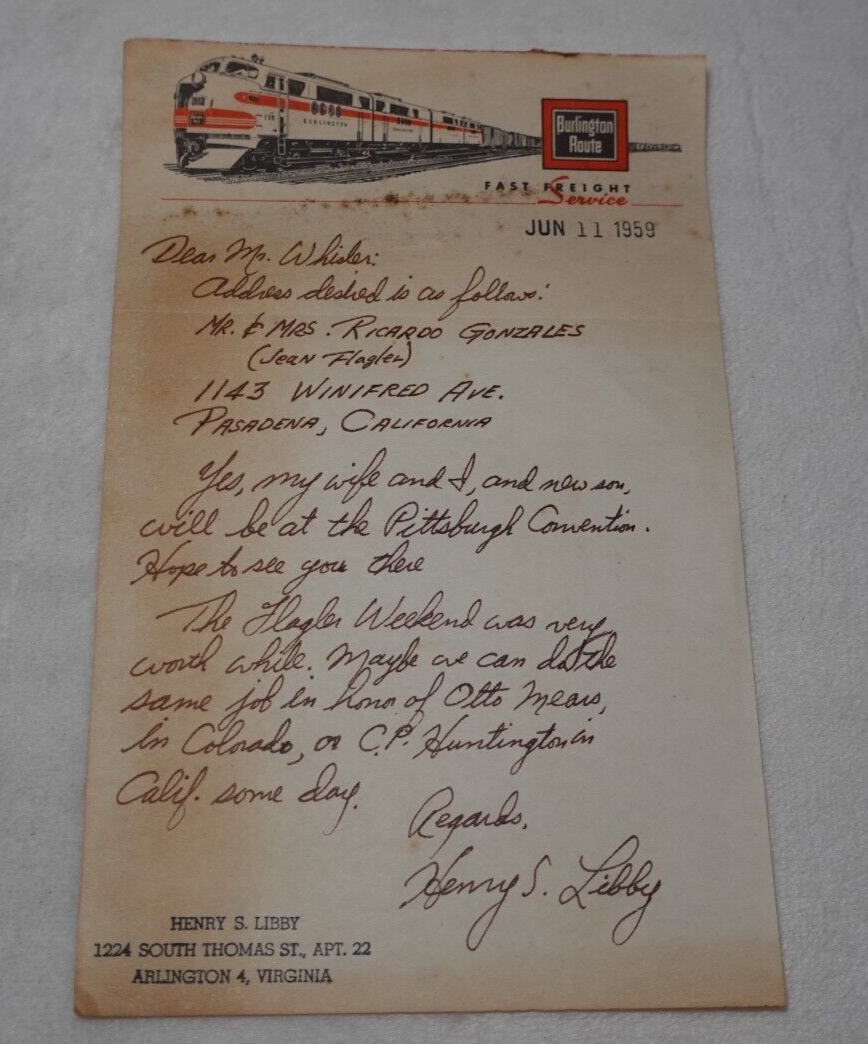 BURLINGTON
Burlington
Route
FAST FREIGHT
Service
JUN 11 1959
Dear Mr. Whisler:
Address desired is as follows:
MR. & MRS. RICARDO GONZALES
(Jean Flagler)
1143 WINIFRED AVE.
PASADENA, CALIFORNIA
Yes, my wife and I, and new son,
will be at the Pittsburgh Convention.
Hope to see you there
The Flagler Weekend was very
worth while. Maybe we can do the
same job in honor of Otto Mears,
in Colorado, or C.P. Huntington in
Calif. some day.
Regards,
Henry S. Libby
HENRY S. LIBBY
1224 SOUTH THOMAS ST., APT. 22
ARLINGTON 4, VIRGINIA